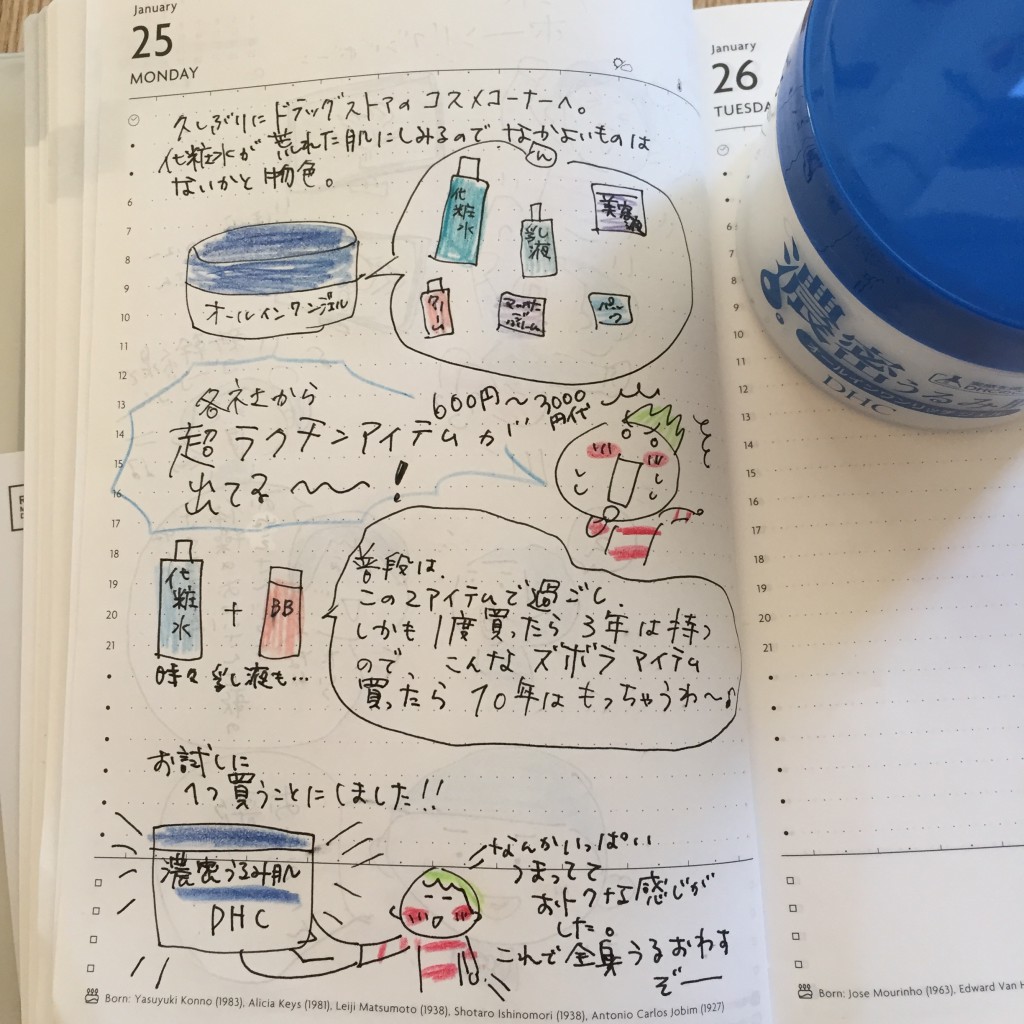 January
25
MONDAY
久しぶりにドラッグストアのコスメコーナーへ。
化粧水が荒れた肌にしみるのでなかよいものは
ん
ないかと物色。
化粧水
乳液
美容液
クリーム
パック
オールインワンジェル
各社から
超ラクチンアイテムが
出てる〜〜!
600円〜3000
円代
化粧水
+
BB
時々乳し液も…
普段は、
この2アイテムで過ごし、
しかも1度買ったら3年は持つ
ので、こんなズボラアイテム
買ったら10年はもっちゃうわ〜♪
お試しに
1つ買うことにしました!!
濃密うるみ肌
DHC
なんかいっぱい
うまってて
おトクな感じが
した。
これで全身うるおわす
ぞー
6
7
8
9
10
11
12
13
14
15
16
17
18
19
20
21
Born: Yasuyuki Konno (1983), Alicia Keys (1981), Leiji Matsumoto (1938), Shotaro Ishinomori (1938), Antonio Carlos Jobim (1927)
January
26
TUESDA
6
7
8
9
10
11
12
13
14
15
16
17
18
19
20
21
Born: Jose Mourinho (1963), Edward Van H
濃密うるみ
DHC